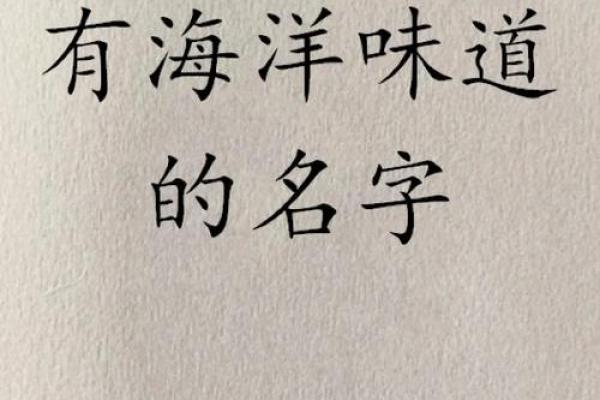 有海洋味道
的名字